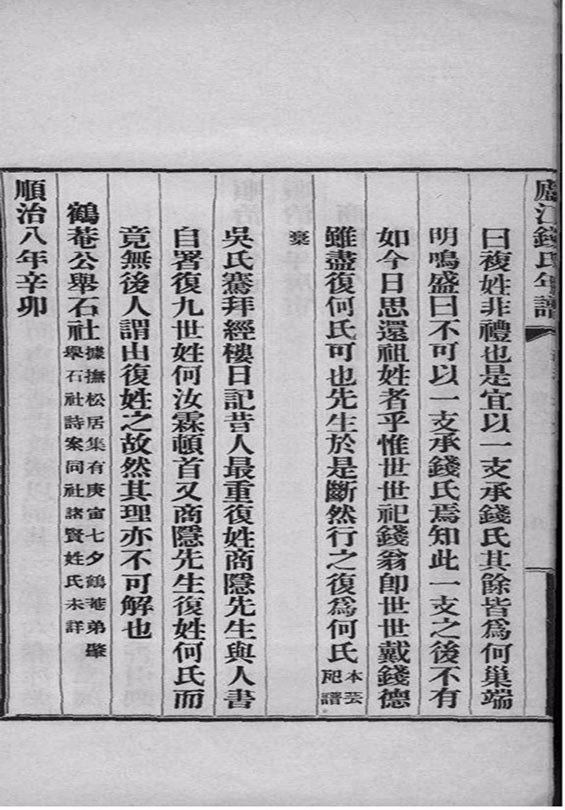 廬江錢氏年譜
曰複姓非禮也是宜以一支承錢氏其餘皆爲何巢端
明鳴盛曰不可以一支承錢氏焉知此一支之後不有
如今日思還祖姓者乎惟世世祀錢翁卽世世戴錢德
雖盡復何氏可也先生於是斷然行之復爲何氏
本芸
譜
藁
吳氏騫拜經樓日記昔人最重復姓商隱先生與人書
自署復九世姓何汝霖頓首又商隱先生復姓何氏而
竟無後人謂由復姓之故然其理亦不可解也
鶴菴公舉石社
據撫松居集有庚寅七夕鶴菴弟肇
舉石社詩案同社諸賢姓氏未詳
順治八年辛卯